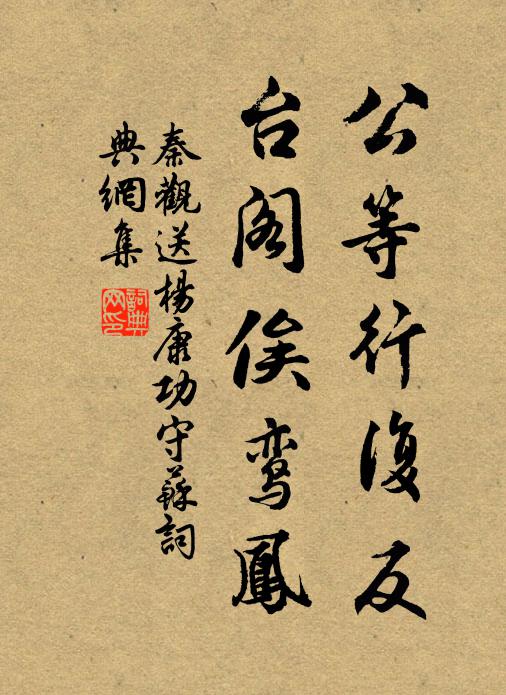 公等行復反
台阁俟鸾鳳
秦觀送楊康功守蘇詞
典網集
詞典
网印